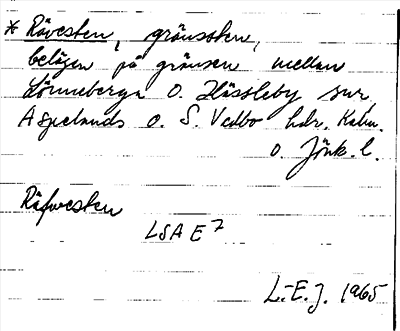 * Rävesten, gränssten,
belägen på gränsen mellan
Lönneberga o. Hässleby snr,
Aspelands o. S. Vedbo hdr. Kalm.
o. Jönk. l.
Räfvesten
LSA E 7
L.-E. J. 1965